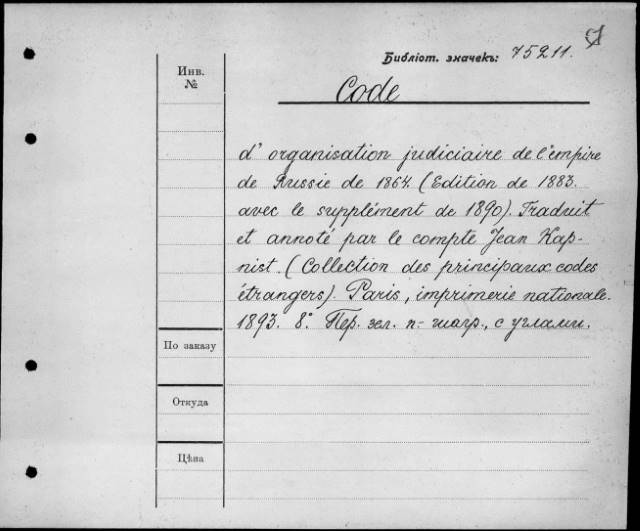 Библіот. значекъ: 75211.
Инв.
№
Code
d' organisation judiciaire de l'empire
de Russie de 1864. (Edition de 1883.
avec le supplément de 1890). Traduit
et annoté par le compte Jean Kap-
nist. (Collection des principaux codes
étrangers). Paris, imprimerie nationale.
1893. 8°. Пер. зел. п.- шагр., с углами.
По заказу
Откуда
Цѣна